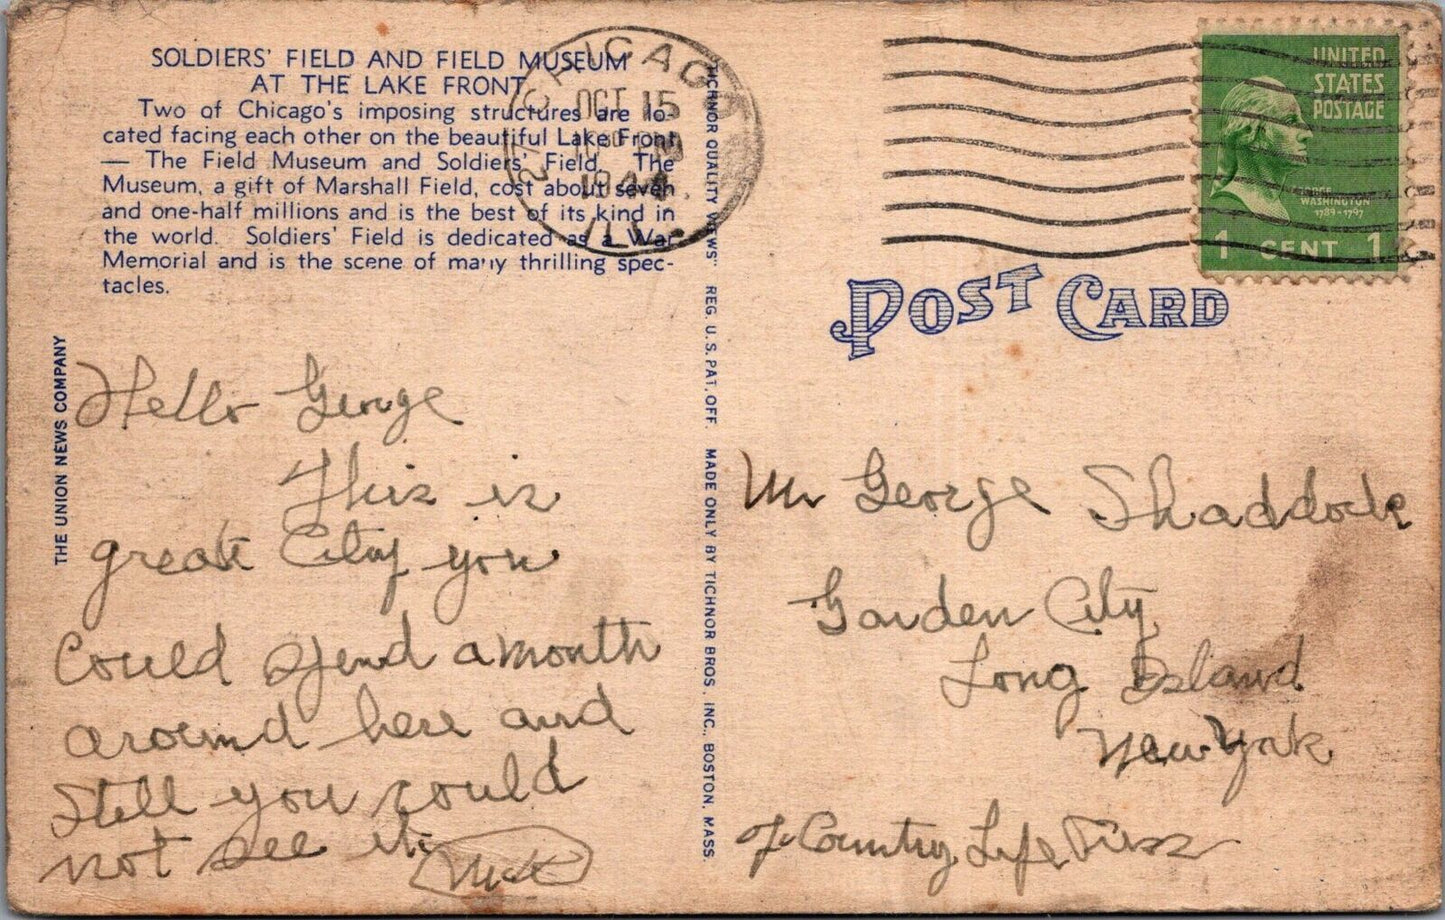 SOLDIERS' FIELD AND FIELD MUSEUM
AT THE LAKE FRONT
Two of Chicago's imposing structures are lo-
cated facing each other on the beautiful Lake Front
— The Field Museum and Soldiers' Field. The
Museum, a gift of Marshall Field, cost about seven
and one-half millions and is the best of its kind in
the world. Soldiers' Field is dedicated as a War
Memorial and is the scene of many thrilling spec-
tacles.
THE UNION NEWS COMPANY
Hello George
This is
great City you
could spend a month
around here and
still you could
not see it.
"TICHNOR QUALITY VIEWS" REG. U. S. PAT. OFF. MADE ONLY BY TICHNOR BROS. INC., BOSTON, MASS.
CHICAGO
OCT 15
1944
ILL.
2
UNITED
STATES
POSTAGE
GEORGE
WASHINGTON
1789-1797
1 CENT 1
POST CARD
Mr George Shaddock
Garden City
Long Island
New York
c/o Country Life Press